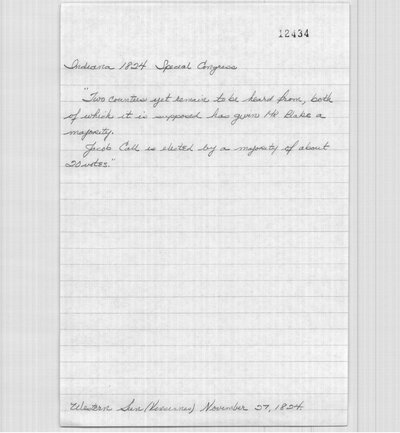 12434
Indiana 1824 Special Congress
"Two counties yet remain to be heard from, both
of which it is supposed has given Mr Blake a
majority.
Jacob Call is elected by a majority of about
20 votes."
Western Sun (Vincennes) November 27, 1824